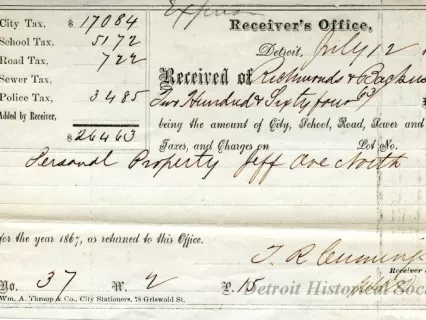 Expense
City Tax, $ 170 84
Receiver's Office,
School Tax, 51 72
Detroit, July 12
Road Tax, 7 22
Received of Richmonds & Backus
Sewer Tax,
Two Hundred & Sixty four 63
Police Tax, 34 85
being the amount of City, School, Road, Sewer and
Added by Receiver,
$ 264 63
Taxes, and Charges on Lot No.
Personal Property Jeff Ave North
for the year 1867, as returned to this Office.
T. R. Cumming
Receiver
No. 37 W. 2 P. 15
Detroit Historical Soc
Wm. A. Throop & Co., City Stationers, 78 Griswold St.